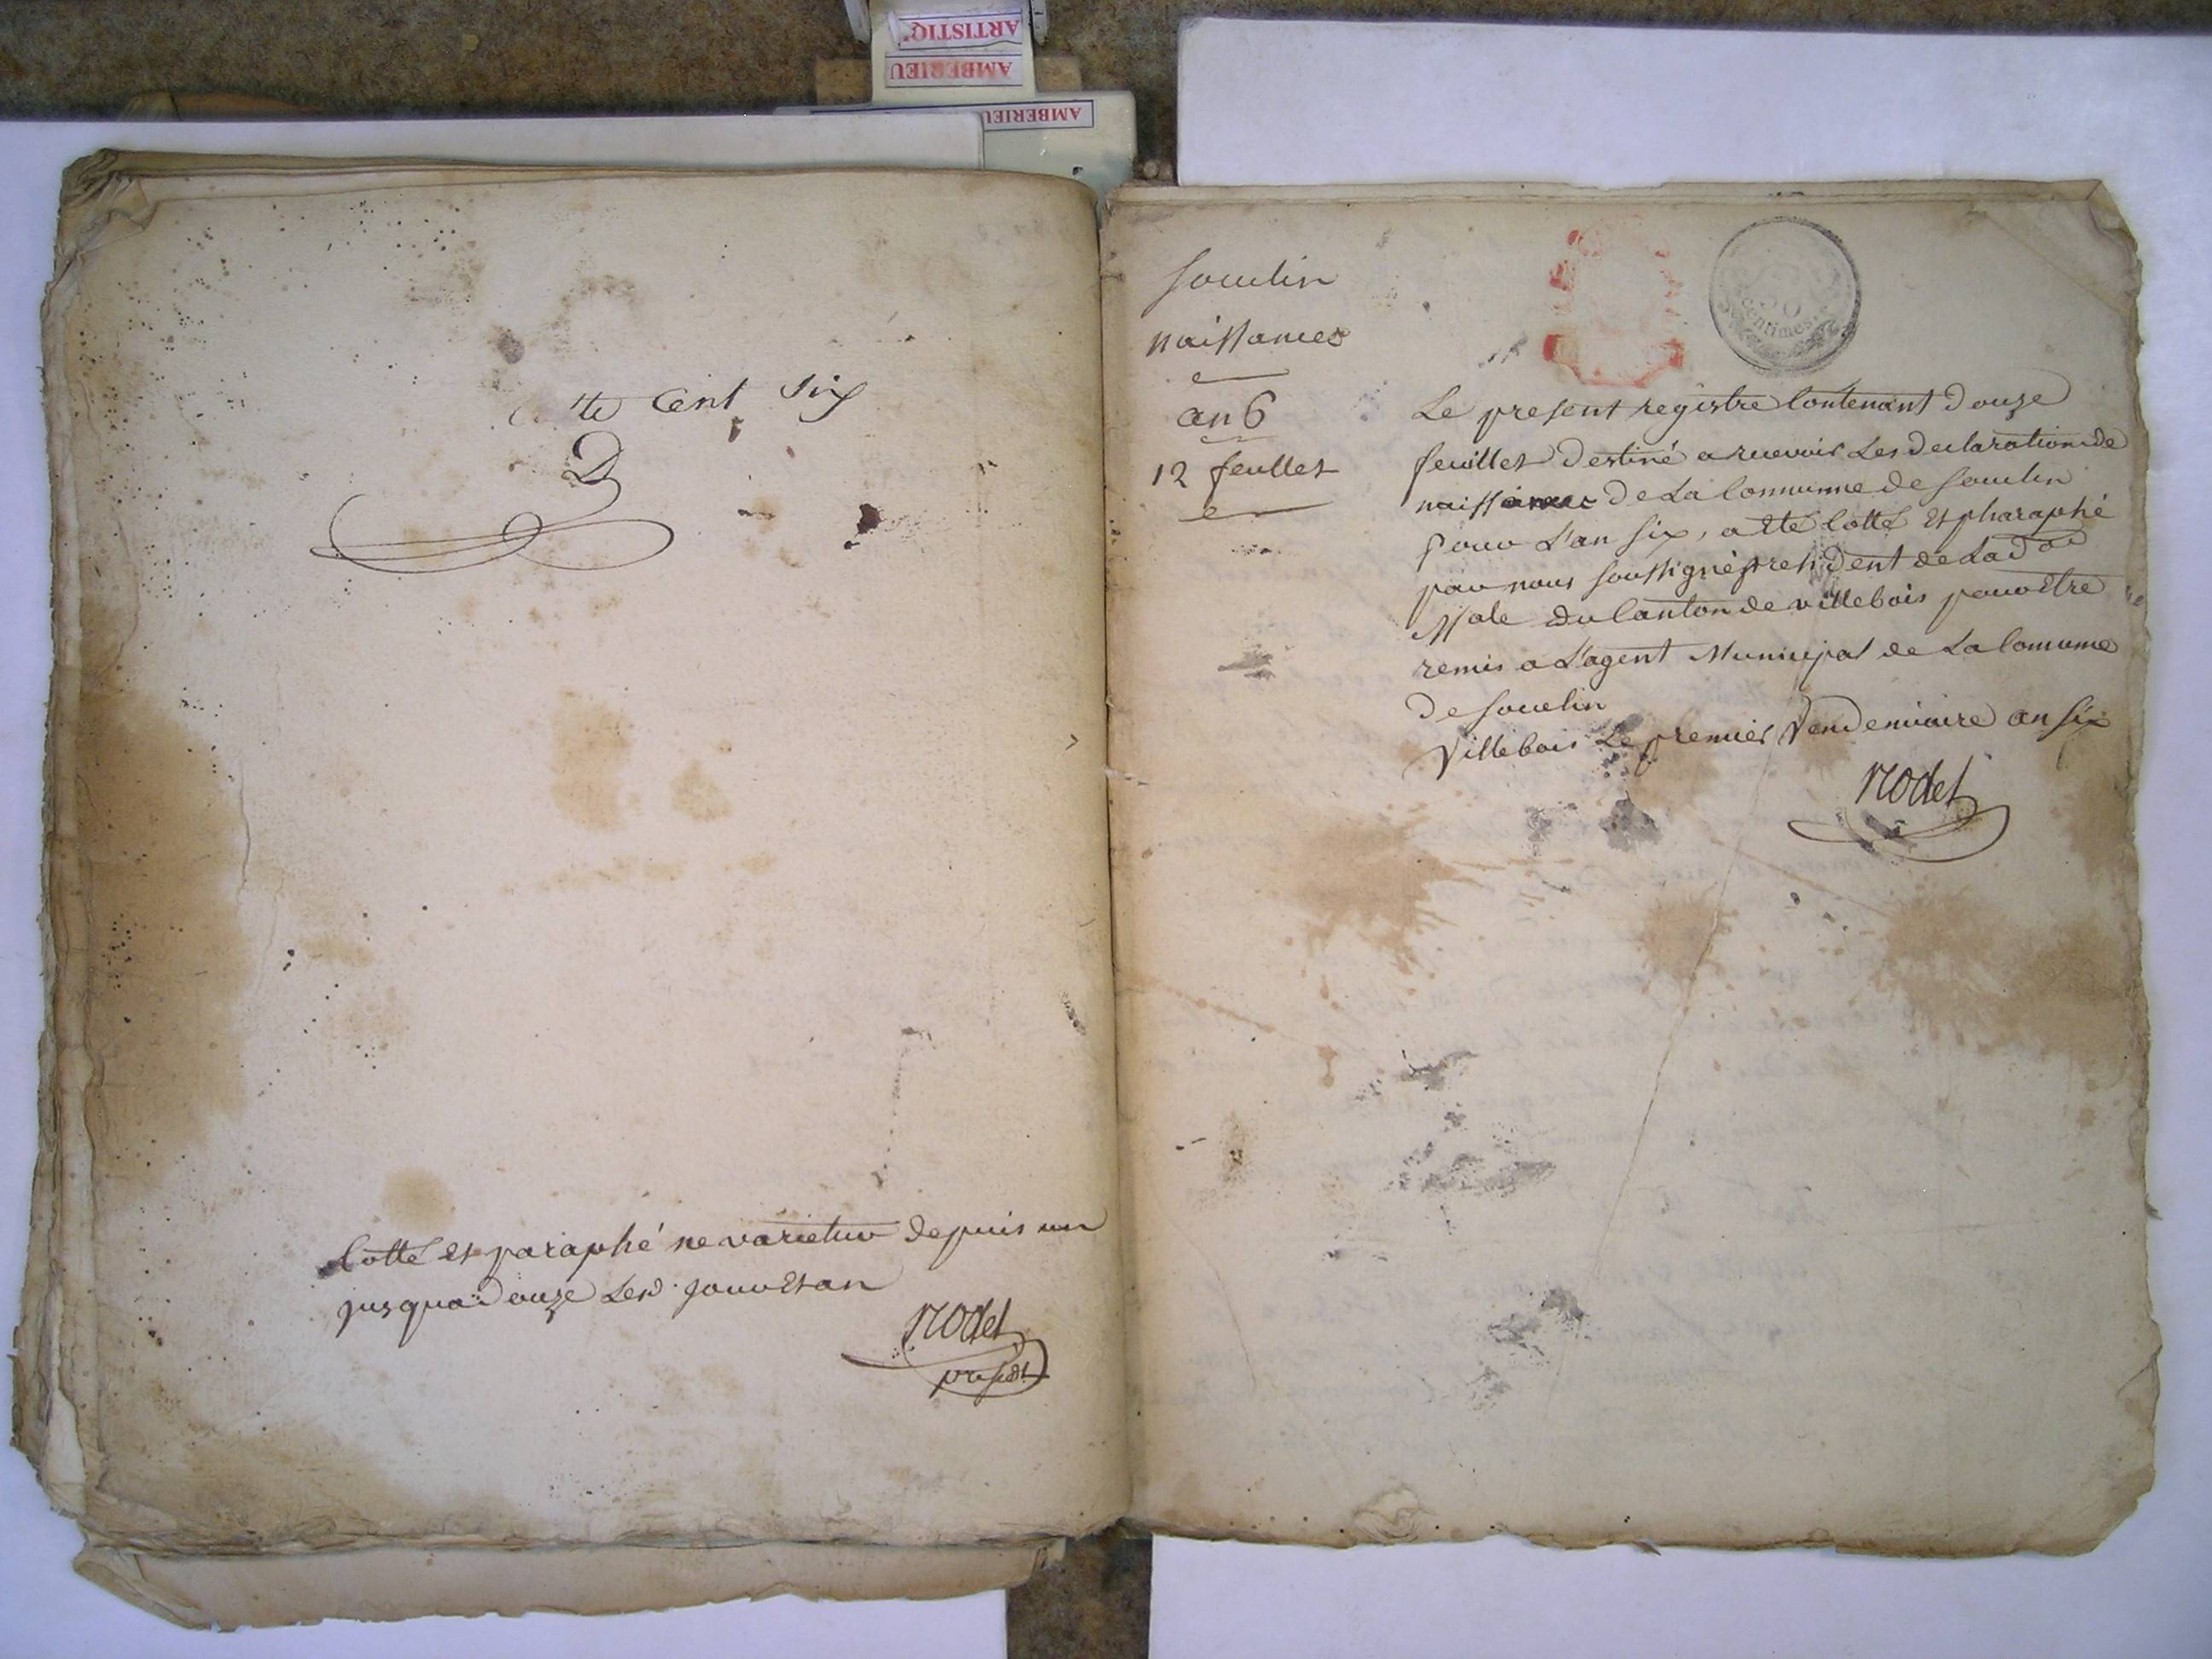 ARTISTIQ'
AMBERIEU
AMBERIEU
Cotte Cent Six
Cotté et paraphé ne varietur depuis un
jusqua douze Lesd. jour et an
Rodet
presidt
Souclin
naissances
an 6
12 feullet
centimes
Le present registre Contenant douze
feuillet destiné a recevoir Les declaration de
naissances de La Commune de Souclin
pour L'an Six, a été Cotté et pharaphé
par nous soussigné president de Lad. ad
ssale du Canton de villebois pour Etre
remis a L'agent Municipal de La Commune
de Souclin
Villebois Le premier Vendemiaire an Six
Rodet